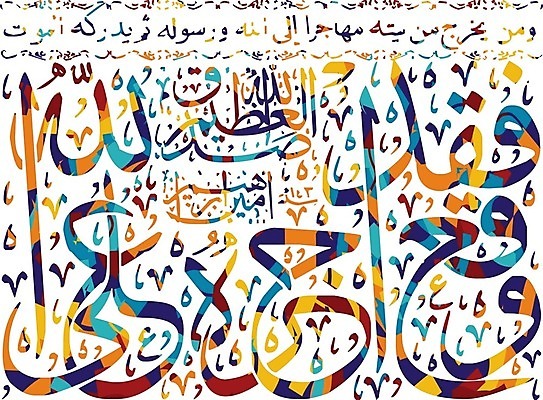 ومن يخرج من بيته مهاجرا إلى الله ورسوله ثم يدركه الموت
فقد وقع أجره على الله
صدق الله العظيم